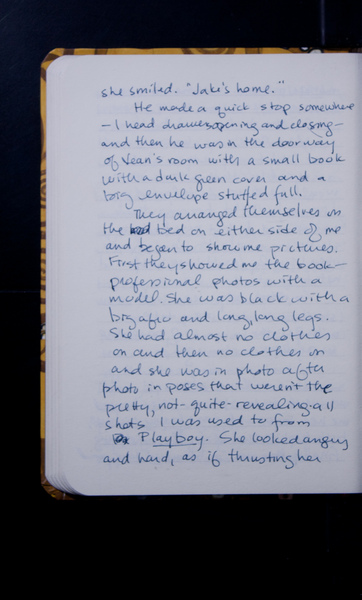 she smiled. "Jaki's home."
He made a quick stop somewhere
— I heard drawers opening and closing —
and then he was in the doorway
of Vean's room with a small book
with a dark green cover and a
big envelope stuffed full.
They arranged themselves on
the bed on either side of me
and began to show me pictures.
First they showed me the book –
professional photos with a
model. She was black with a
big afro and long, long legs.
She had almost no clothes
on and then no clothes on
and she was in photo after
photo in poses that weren't the
pretty, not-quite-revealing-all
shots I was used to from
Playboy. She looked angry
and hard, as if thrusting her